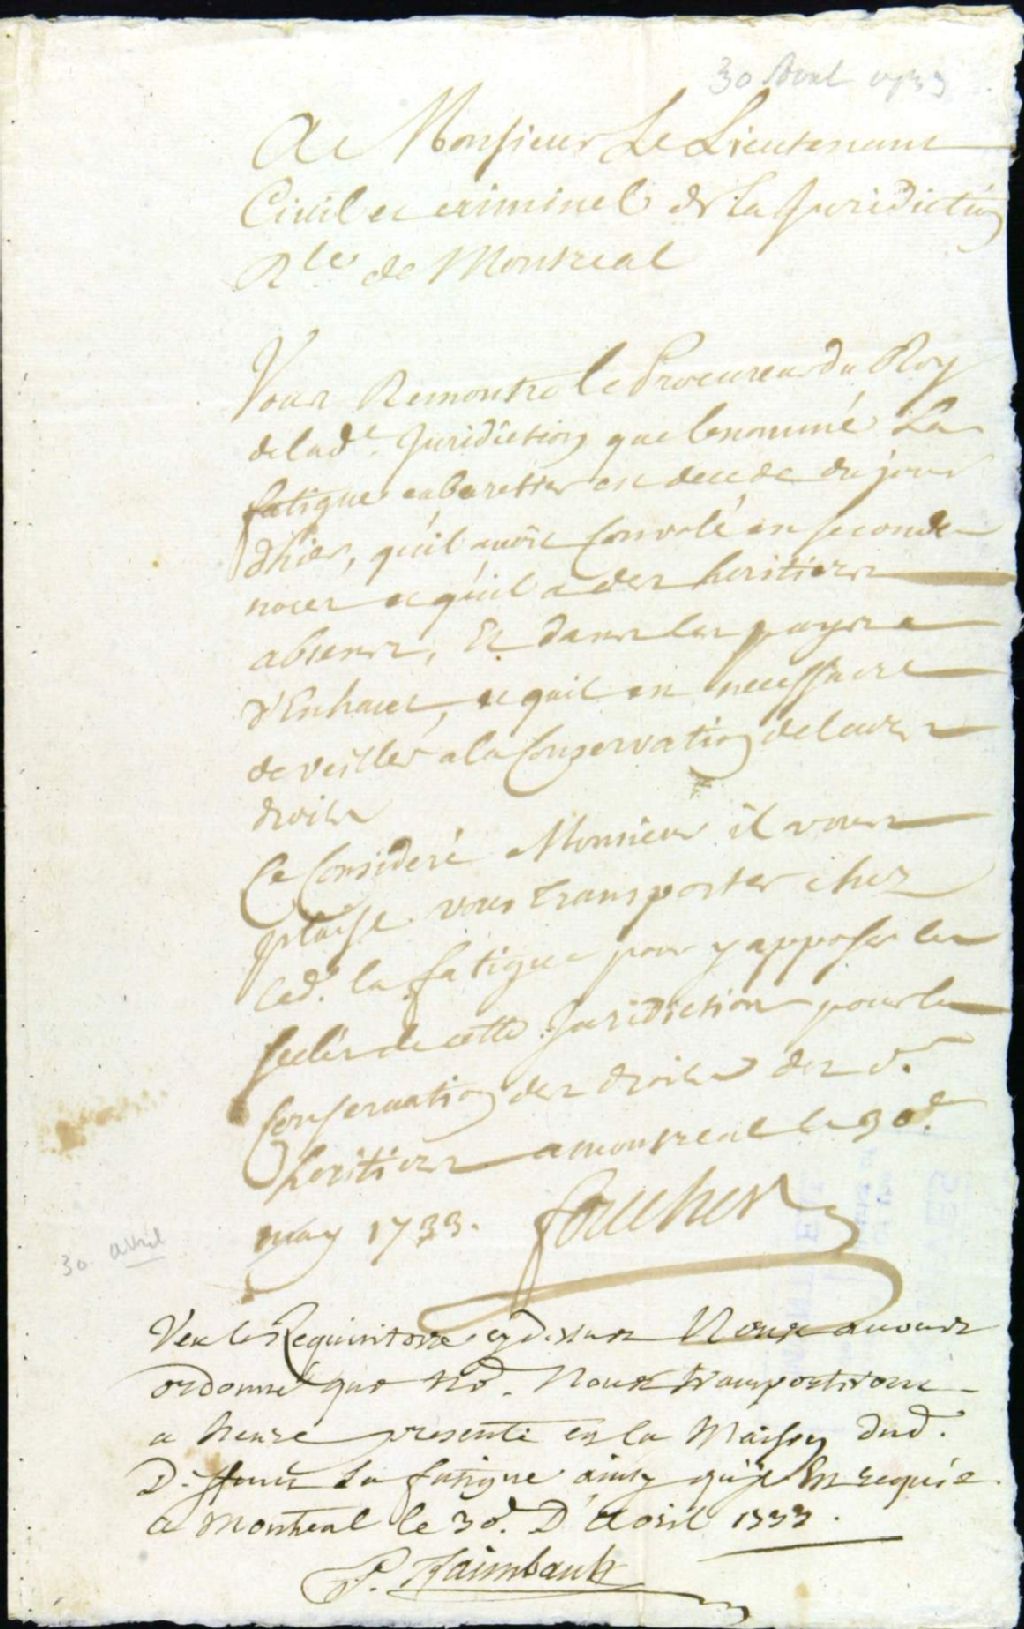 30 Avril 1733
A Monsieur Le Lieutenant
Civil et criminel de la Juridiction
Rle de Montreal
Vous Remontre le Procureur du Roy
de lad.e Juridiction que le nommé La
fatigue cabaretier est decedé du jour
d'hier, qu'il avoit Convolé en seconde
noces et qu'il a des heritiers
absents, Et dans les payse
d'Enhaut, et quil est necessaire
de veiller a la Conservation de leurs
droits
Ce Consideré Monsieur il vous
plaise vous transporter chez
led. la fatigue pour y apposer les
scelés de cette Juridiction pour la
Conservation des droits des d.
heritiers a montreal le 30.e
may 1733. foucher
30 avril
Veu le Requisitoire cy dessus Nous avons
ordonné que Nous transporterons
a heure presente en la Maison dud.
Deffunt La fatigue ainsy qu'il Est requis
a Montreal le 30e. D'avril 1733.
P. Raimbault